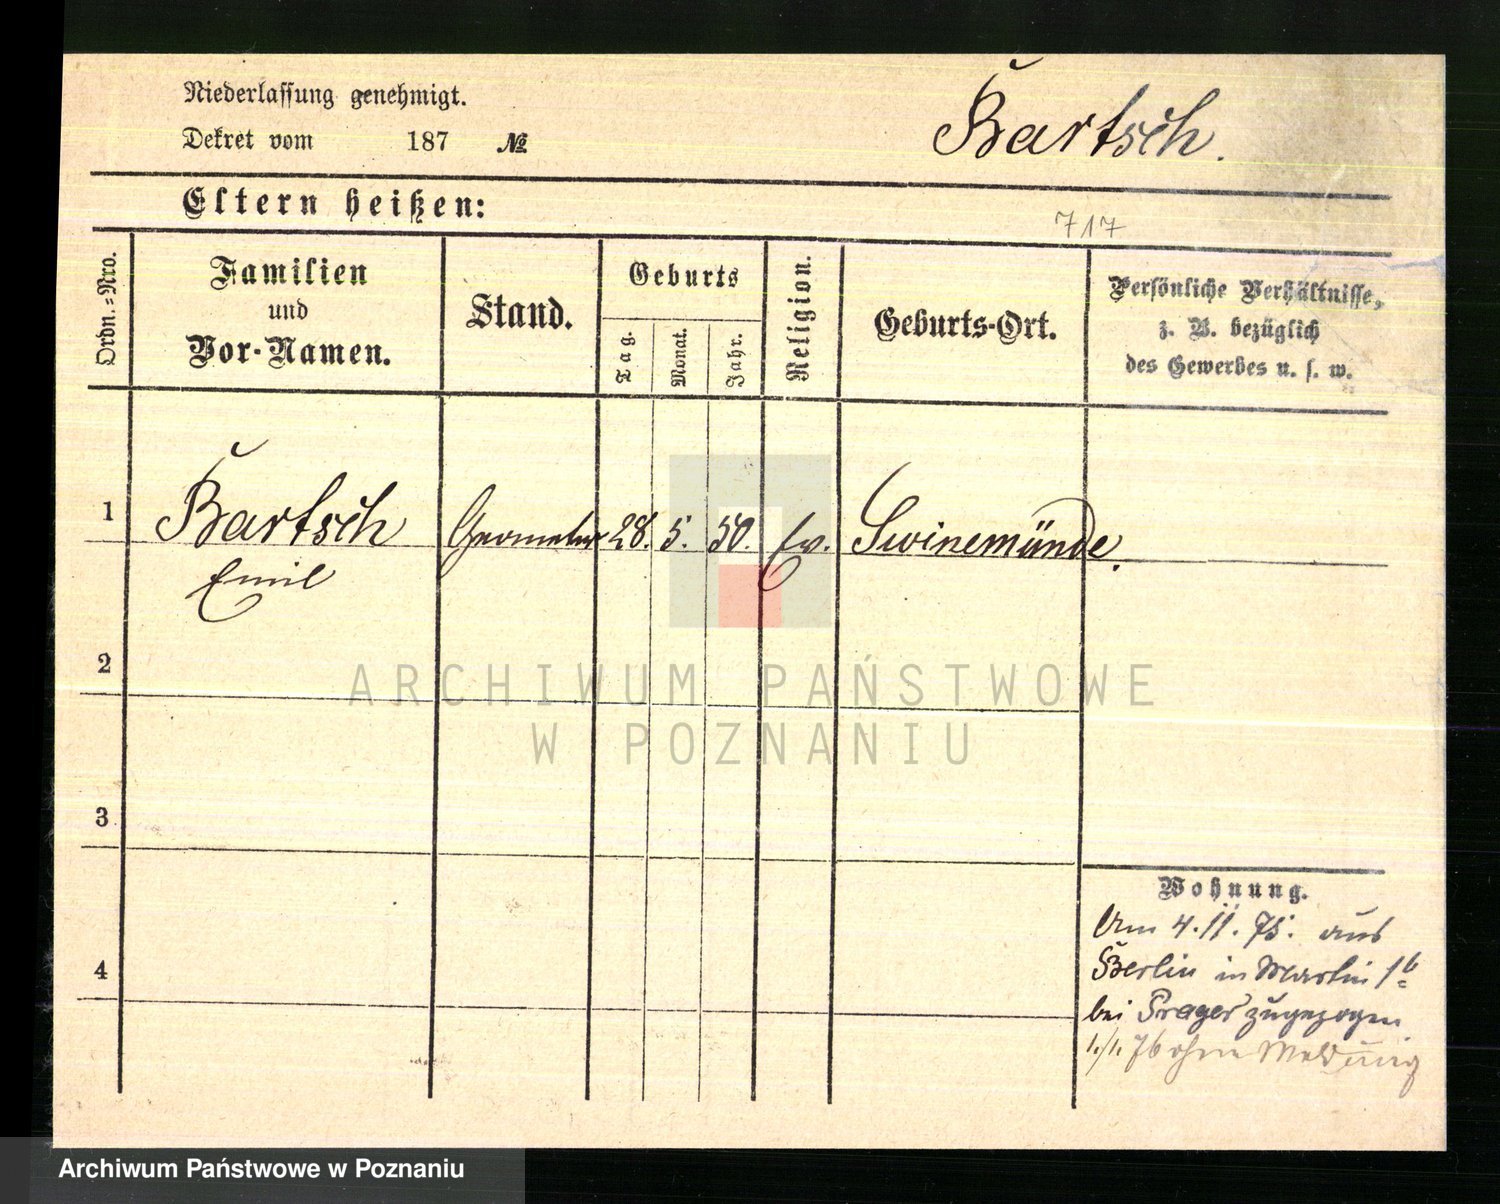 Niederlassung genehmigt.
Dekret vom 187 №
Bartsch.
Eltern heißen:
717
Ordn.=Nro.
Familien
und
Vor-Namen.
Stand.
Geburts
Tag.
Monat.
Jahr.
Religion.
Geburts-Ort.
Persönliche Verhältnisse,
z. B. bezüglich
des Gewerbes u. s. w.
1 Bartsch Geometer 28. 5. 50. Ev. Swinemünde.
Emil
2
3
4
Wohnung.
Am 4.11.75. aus
Berlin in Martin
bei Prager zugezogen
1./1. 76 ohne Meldung
ARCHIWUM PAŃSTWOWE
W POZNANIU
Archiwum Państwowe w Poznaniu